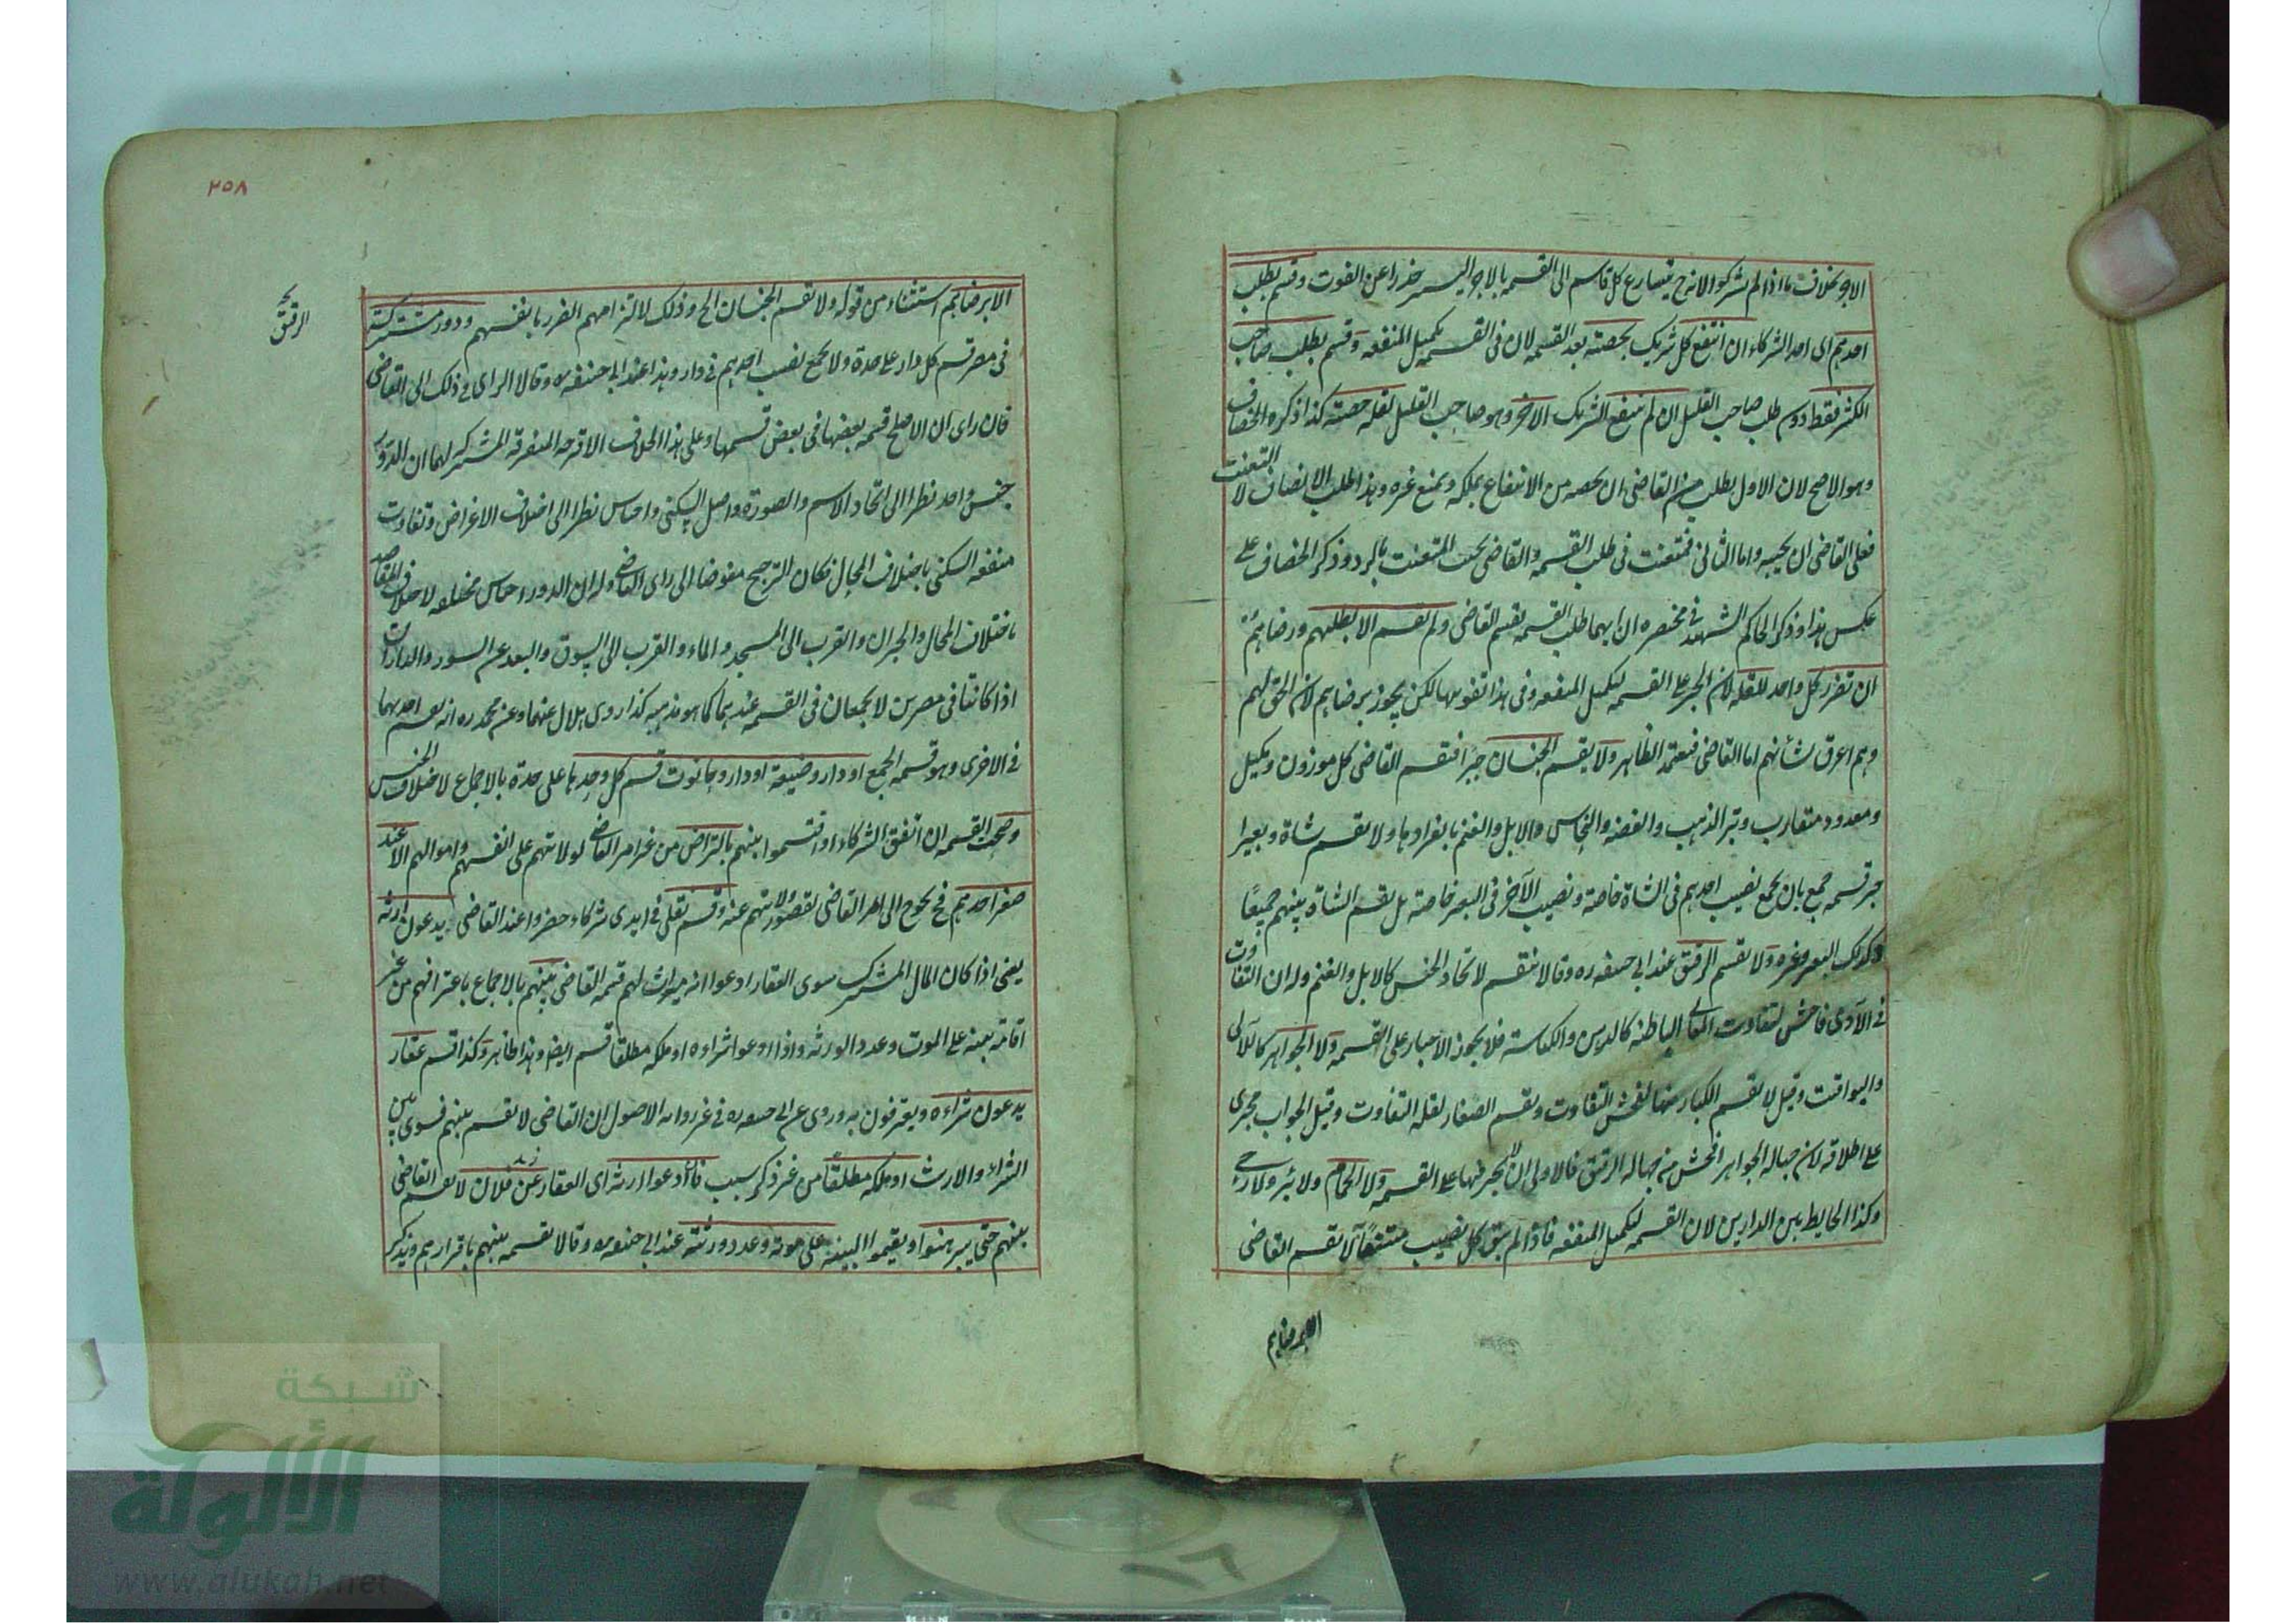 الاجر بخلاف ما اذا لم يشركوا الا نرى يتسارع كل قاسم الى القسمه بالاجر اليسير حذرا عن الفوت وقسم بطلب
احدهم اى احد الشركاء ان انتفع كل شريك بحصته بعد القسمه لان فى القسمه تكميل المنفعه وقسم بطلب صاحب
الكثير فقط دون طلب صاحب القليل ان لم ينتفع الشريك الاخر وهو صاحب القليل لقله حصته كذا ذكره الخصاف
وهو الاصح لان الاول يطلب من القاضى ان يخصه من الانتفاع بملكه ويمنع غيره وهذا طلب الانصاف لا التعنت
فعلى القاضى ان يجيبه واما الثانى فمتعنت فى طلب القسمه والقاضى يجيب المتعنت بالرد وذكر الخصاف على
عكس هذا وذكر الحاكم الشهيد فى مختصره ان ايهما طلب القسمه يقسم القاضى ولم يقسم الا بطلبهم ورضاهم
ان تضرر كل واحد للقله لان الجبر على القسمه لتكميل المنفعه وفى هذا تفويتها لكن يجوز برضاهم لان الحق لهم
وهم اعرف لشأنهم اما القاضى فيعتمد الظاهر ولا يقسم الجنسان جبرا فيقسم القاضى كل موزون ومكيل
ومعدود متقارب وتبر الذهب والفضه والنحاس والابل والغنم بانفرادها ولا يقسم شاة وبعيرا
جبر قسمه جمع بان يجمع نصيب احدهم فى الشاة خاصة ونصيب الآخر فى البعير خاصة بل يقسم الشاة بينهم جميعًا
وكذلك البعير وغيره ولا يقسم الرقيق عند ابى حنيفه ره وقالا يقسم لاتحاد الجنس كالابل والغنم وله ان التفاوت
فى الآدمى فاحش لتفاوت المعانى الباطنه كالدين والكياسة فلا يجوز الاجبار على القسمه ولا الجواهر كاللآلى
واليواقيت وقيل لا يقسم الكبار منها لفحش التفاوت ويقسم الصغار لقله التفاوت وقيل الجواب مجرى
على اطلاقه لان جهاله الجواهر افحش من جهاله الرقيق فالاولى ان لا يجبر فيها على القسمه ولا الحمام ولا بئر ولا رحى
وكذا الحايط بين الدارين لان القسمه لتكميل المنفعه فاذا لم يبق كل نصيب منتفعًا لا يقسم القاضى
الا برضاهم
٢٥٨
الرقيق
الا برضاهم استثناء من قوله ولا يقسم الجنسان الخ وذلك لالتزامهم الضرر بانفسهم ودور مشتركة
فى مصر قسم كل دار على حدة ولا يجمع نصيب احدهم فى دار وهذا عند ابى حنيفه ره وقالا الراى فى ذلك الى القاضى
فان راى ان الاصلح قسمه بعضها فى بعض قسمها وعلى هذا الخلاف الاقرحه المتفرقه المشتركه لهما ان الدور
جنس واحد نظرا الى اتحاد الاسم والصورة واصل السكنى واجناس نظرا الى اختلاف الاغراض وتفاوت
منفعه السكنى باختلاف المحال فكان الترجيح مفوضا الى راى القاضى وله ان الدور اجناس مختلفه لاختلاف المقاصد
باختلاف المحال والجيران والقرب الى المسجد والماء والقرب الى السوق والبعد عن السور والداران
اذا كانتا فى مصرين لا يجمعان فى القسمه عندهما كما هو مذهبه كذا روى هلال عنهما وعن محمد ره انه يقسم احدهما
فى الاخرى وهو قسمه الجمع او دار وضيعة او دار وحانوت قسم كل وحدها على حدة بالاجماع لاختلاف الجنس
وصحت القسمه ان اتفق الشركاء او اقتسموا بينهم بالتراض من غير امر القاضى لولايتهم على انفسهم واموالهم الا عند
صغر احدهم فح يحوج الى امر القاضى لقصور ولايتهم عنه وقسم نقلى فى ايدى شركاء حضروا عند القاضى يدعون ارثه
يعنى اذا كان المال المشترك سوى العقار ادعوا انه ميراث لهم قسمه القاضى بينهم بالاجماع باعترافهم من غير
اقامه بينه على الموت وعدد الورثه واذا ادعوا شراءه او ملكه مطلقا قسم ايضا وهذا ظاهر وكذا قسم عقار
يدعون شراءه ويعترفون به وروى عن ابى حنيفه ره فى غير روايه الاصول ان القاضى لا يقسم بينهم فسوى بين
الشراء والارث او ملكه مطلقا من غير ذكر سبب فان ادعوا ارثه اى العقار عن فلان لا يقسم القاضى
بينهم حتى يبرهنوا ويقيموا البينة على موته وعدد ورثته عند ابى حنيفه ره وقالا يقسمه بينهم باقرارهم ويذكر
شبكة
الألولة
www.alukah.net